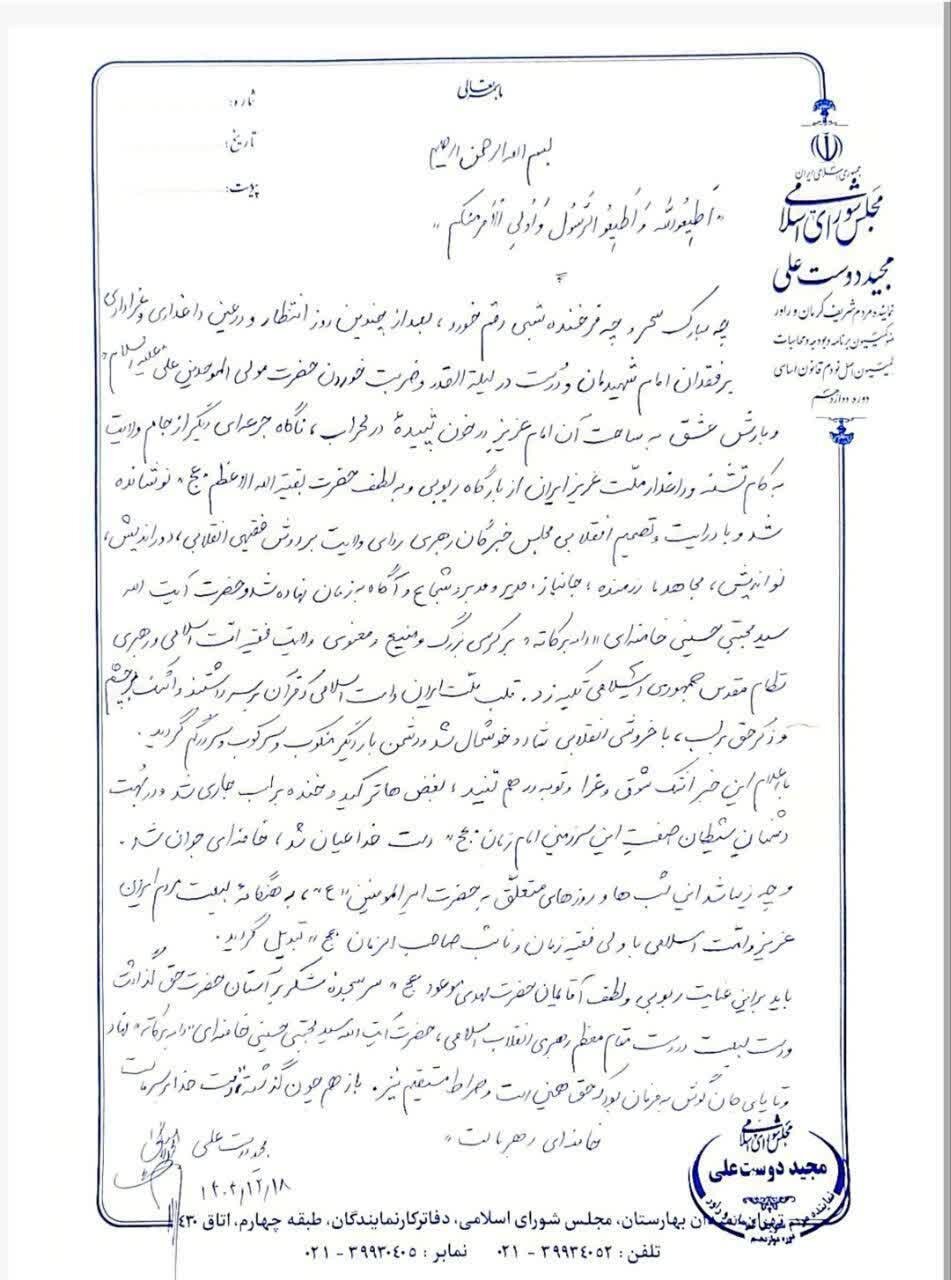 باسمه تعالی
شماره:
تاریخ:
پیوست:
جمهوری اسلامی ایران
مجلس شورای اسلامی
مجید دوست علی
نماینده مردم شریف کرمان و راور
عضو کمیسیون برنامه و بودجه و محاسبات
کمیسیون اصل نودم قانون اساسی
دوره دوازدهم
بسم الله الرحمن الرحیم
"اَطِیعُوالله وَ اَطِیعُو الرَّسُول وَ اُولِی الاَمرِ مِنکُم"
چه مبارک سحر و چه فرخنده شبی رقم خورد، بعد از چندین روز انتظار و در عین داغداری و عزاداری
بر فقدان امام شهیدمان و درست در لیلة القدر و ضربت خوردن حضرت مولی الموحدین علی "علیه السلام"
و بارش عشق به ساحت آن امام عزیز در خون تپیدهٔ در محراب، نگاه جرعه‌ای دیگر از جام ولایت
به کام تشنه و داغدار ملّت عزیز ایران از بارگاه ربوبی و به لطف حضرت بقیة الله الاعظم "عج" نوشانده
شد و با درایت و تصمیم انقلابی مجلس خبرگان رهبری ردای ولایت بر دوش فقیهی انقلابی، دوراندیش،
نواندیش، مجاهد، رزمنده، جانباز، مدیر و مدبر و شجاع و آگاه به زمان نهاده شد و حضرت آیت الله
سید مجتبی حسینی خامنه‌ای "دام برکاته" بر کرسی بزرگ و منیع و معنوی ولایت فقیه امت اسلامی و رهبری
نظام مقدس جمهوری اسلامی تکیه زد. قلب ملّت ایران و امت اسلامی که قرآن بر سر داشتند و اشک بر چشم
و ذکر حق بر لب، با خروشی انقلابی شاد و خوشحال شد و دشمن بار دیگر منکوب و سرکوب و سردرگم گردید.
با اعلام این خبر اشک شوق و عزا و توبه در هم تنید، بغض ها ترکید و خنده بر لب جاری شد و در بُهت
دشمنان شیطان صفتِ این سرزمین امام زمان "عج" دست خدا عیان شد، خامنه‌ای جوان شد.
و چه زیبا شد این شب ها و روزهای متعلّق به حضرت امیرالمومنین "ع"، به هنگامهٔ بیعت مردم ایران
عزیز و امّت اسلامی با ولی فقیه زمان و نائب صاحب الزمان "عج" تبدیل گردید.
باید بر این عنایت ربوبی و لطف آقایمان حضرت مهدی موعود "عج" سر سجدهٔ شکر بر آستان حضرت حق گذاشت
و دست بیعت در دست مقام معظم رهبری انقلاب اسلامی، حضرت آیت الله سید مجتبی حسینی خامنه‌ای "دام برکاته" نهاد
و تا پای جان گوش به فرمان بود که حق همین است و صراط مستقیم نیز. باز هم چون گذشته "دست خدا بر سر ماست
خامنه‌ای رهبر ماست"
مجید دوست علی
۱۴۰۴/۱۲/۱۸
مجلس شورای اسلامی
مجید دوست علی
دوره دوازدهم
تهران، میدان بهارستان، مجلس شورای اسلامی، دفاتر کار نمایندگان، طبقه چهارم، اتاق ۴۳۰
تلفن: ۳۹۹۳۴۰۵۲ - ۰۲۱ نمابر: ۳۹۹۳۰۴۰۵ - ۰۲۱